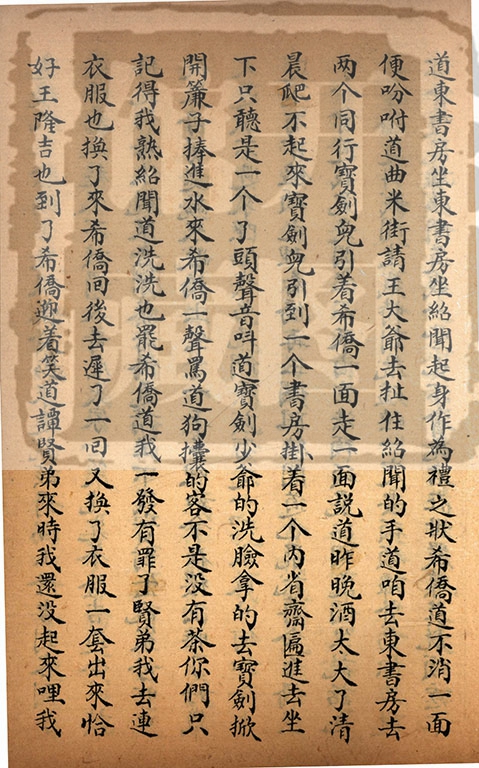 道東書房坐東書房坐紹聞起身作為禮之狀希僑道不消一面
便吩咐道曲米街請王大爺去扯住紹聞的手道咱去東書房去
两个同行寶劍兒引着希僑一面走一面說道昨晚酒太大了清
晨爬不起來寶劍兒引到一个書房掛着一个內省齋匾進去坐
下只聽是一个了頭聲音呌道寶劍少爺的洗臉拿的去寶劍掀
開簾子捧進水來希僑一聲罵道狗攮的客不是没有茶你們只
記得我熟紹聞道洗洗也罷希僑道我一發有罪了賢弟我去連
衣服也換了來希僑回後去遲了一回又換了衣服一套出來恰
好王隆吉也到了希僑迎着笑道譚賢弟來時我還没起來哩我